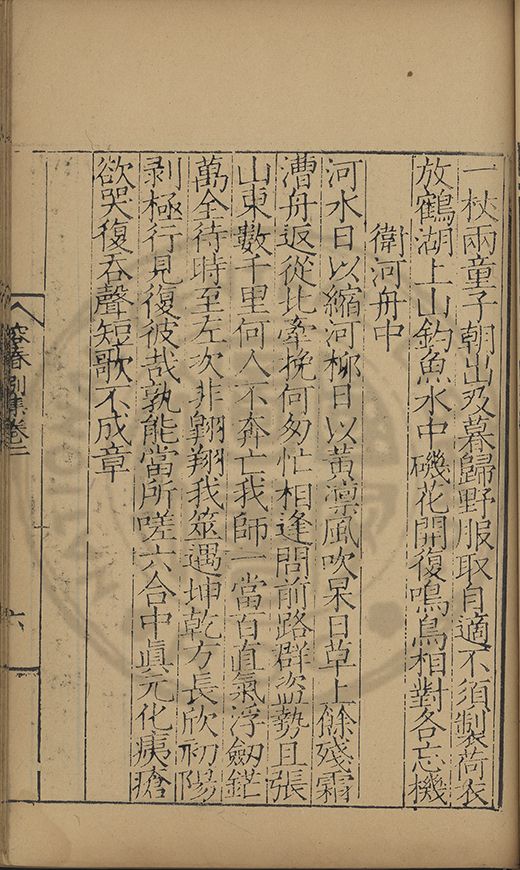 一杖兩童子朝出及暮歸野服取自適不須製荷衣
放鶴湖上山釣魚水中磯花開復鳴鳥相對各忘機
衛河舟中
河水日以縮河柳日以黃凛風吹杲日草上餘殘霜
漕舟返從北牽挽何匆忙相逢問前路群盜勢且張
山東數千里何人不奔亡我師一當百直氣浮劒鋩
萬全待時至左次非翱翔我筮遇坤乾方長欣初陽
剥極行見復彼哉孰能當所嗟六合中眞元化痍瘡
欲哭復吞聲短歌不成章
容春别集卷二
六